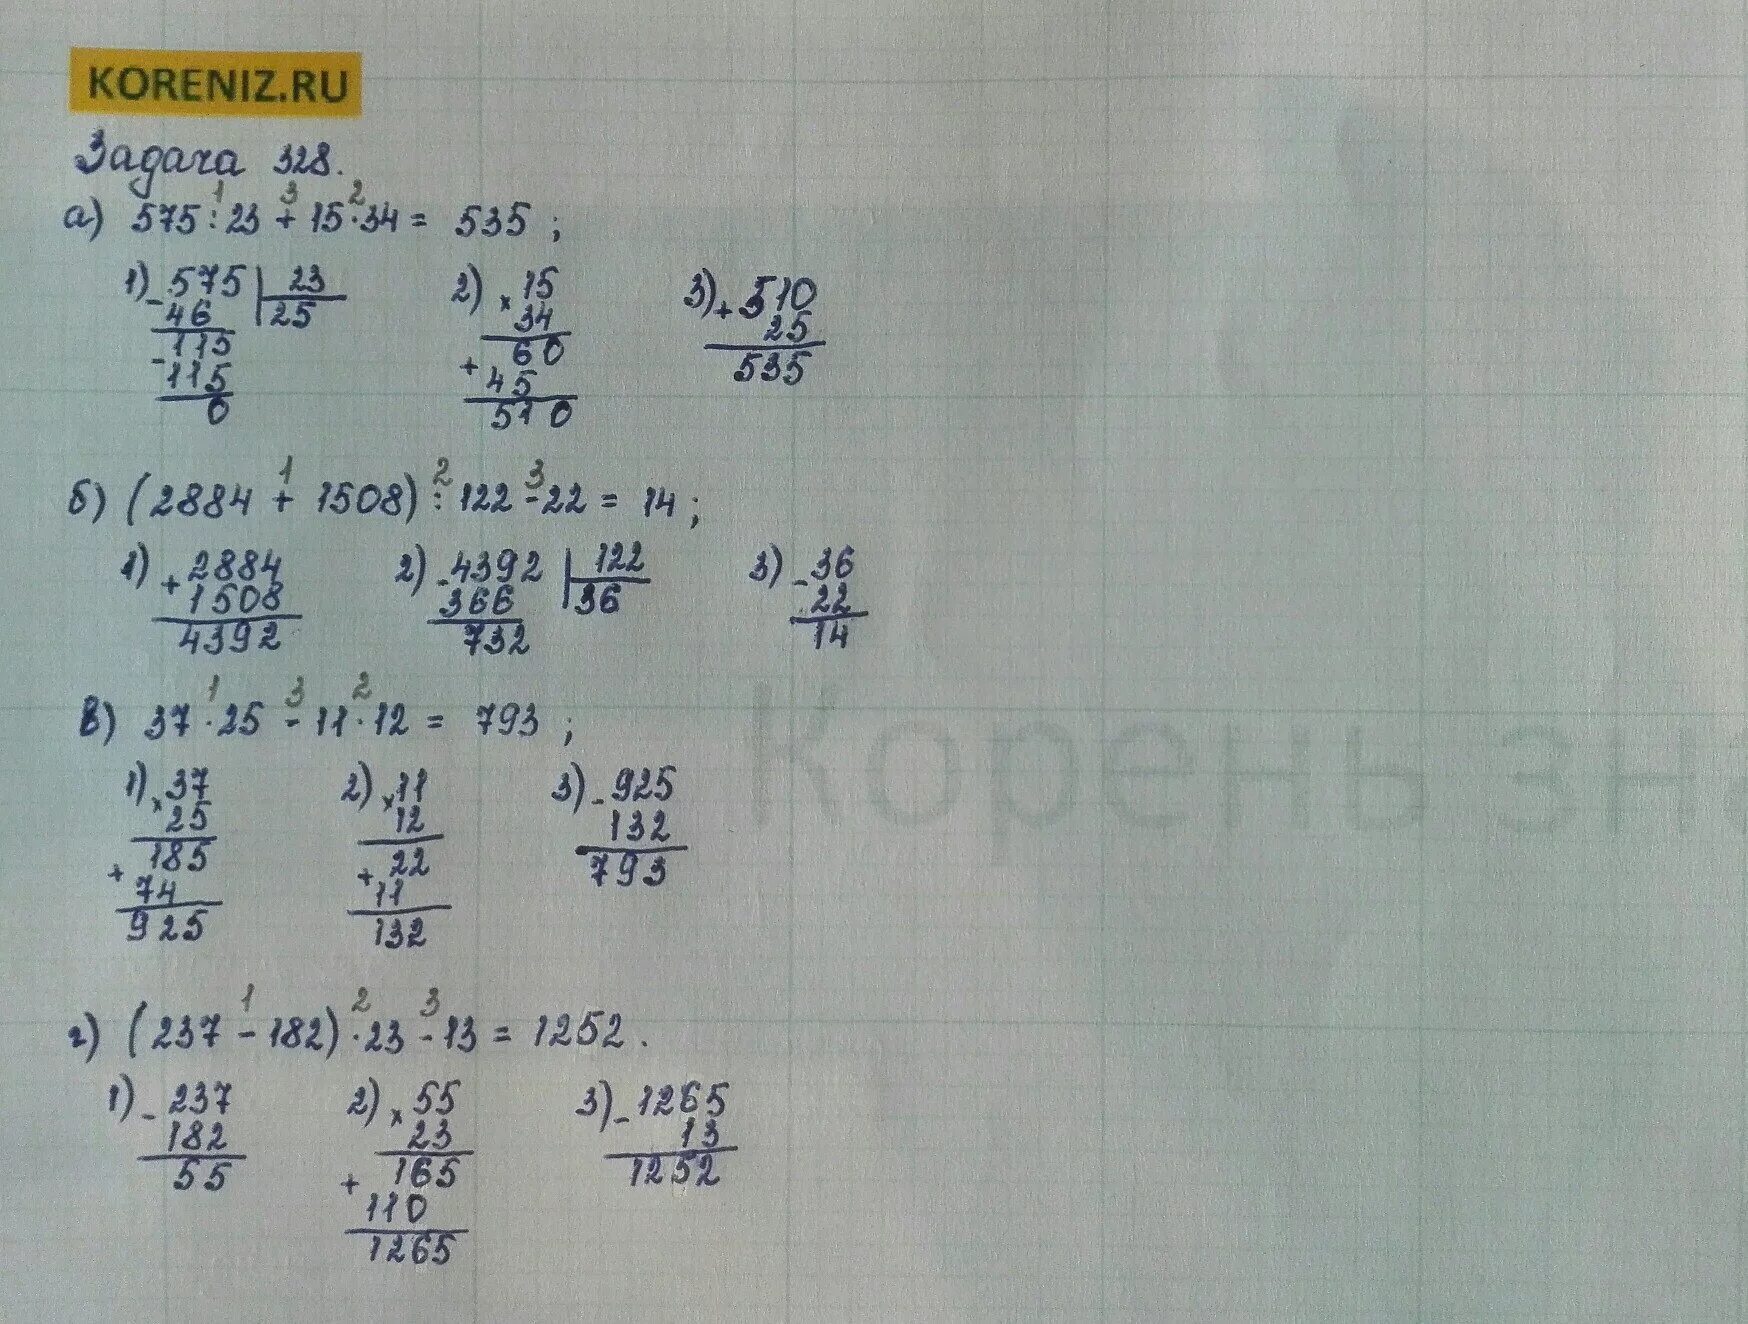 KORENIZ.RU
Задача 328.
1 3 2
а) 575 : 23 + 15 · 34 = 535 ;
1) - 575 | 23
46 | 25
- 115
115
0
2) × 15
34
+ 60
45
510
3) + 510
25
535
1 2 3
б) (2884 + 1508) : 122 - 22 = 14 ;
1) + 2884
1508
4392
2) - 4392 | 122
366 | 36
732
3) - 36
22
14
1 3 2
в) 37 · 25 - 11 · 12 = 793 ;
1) × 37
25
+ 185
74
925
2) × 11
12
+ 22
11
132
3) - 925
132
793
Корень зна
1 2 3
г) (237 - 182) · 23 - 13 = 1252 .
1) - 237
182
55
2) × 55
23
+ 165
110
1265
3) - 1265
13
1252